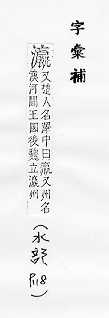 字彙補
瀛又楚人名澤中曰瀛又州名
漢河間王國後魏立瀛州
(水部 P.18)